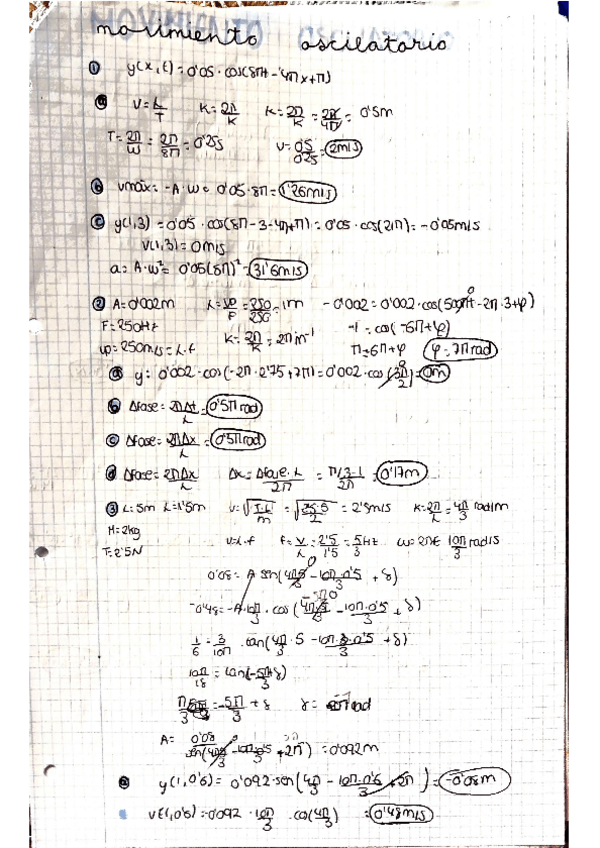 movimiento oscilatorio
① y(x,t) = 0'05 · cos(8πt - 4πx + π)
ⓐ v = λ/T K = 2π/λ λ = 2π/K = 2π/4π = 0'5m
T = 2π/ω = 2π/8π = 0'25s v = 0'5/0'25 = 2m/s
ⓑ vmáx = -A · ω = 0'05 · 8π = 1'26m/s
ⓒ y(1,3) = 0'05 · cos(8π - 3 - 4π + π) = 0'05 · cos(21π) = -0'05m/s
v(1,3) = 0m/s
a = A · ω² = 0'05(8π)² = 31'6m/s
② A = 0'002m λ = vp/F = 250/250 = 1m - 0'002 = 0'002 · cos(500πt - 2π · 3 + φ)
F = 250Hz K = 2π/λ = 2π m⁻¹ -1 = cos(-6π + φ)
vp = 250m/s = λ · f π = 6π + φ φ = 7π rad
ⓐ y = 0'002 · cos(-2π · 2'75 + 7π) = 0'002 · cos(3π/2) = 0m
ⓑ Δfase = 2πΔt/λ = 0'5π rad
ⓒ Δfase = 2πΔx/λ = 0'5π rad
ⓓ Δfase = 2πΔx/λ Δx = Δfase · λ/2π = π/3 · 1/2π = 0'17m
③ L = 5m λ = 1'5m v = √(T · L/m) = √(2'5 · 5/2) = 2'5m/s K = 2π/λ = 4π/3 rad/m
M = 2kg
T = 2'5N v = λ · f f = v/λ = 2'5/1'5 = 5/3 Hz ω = 2πf 10π/3 rad/s
0'08 = A sen(4π5/3 - 10π · 0'5/3 + δ)
-0'48 = -A · 10π/3 · cos(4π5/3 - 10π · 0'5/3 + δ)
1/6 = 3/10π · tan(4π/3 · 5 - 10π · 0'5/3 + δ)
10π/18 = tan(-5π/3 + δ)
π/3 = -5π/3 + δ δ = rad
A = 0'08/sen( + 2π) = 0'092m
ⓐ y(1,0'6) = 0'092 · sen(4π/3 - 10π · 0'6/3 + 2π) = -0'08m
v(1,0'6) = -0'092 · 10π/3 · cos(4π/3) = 0'48m/s